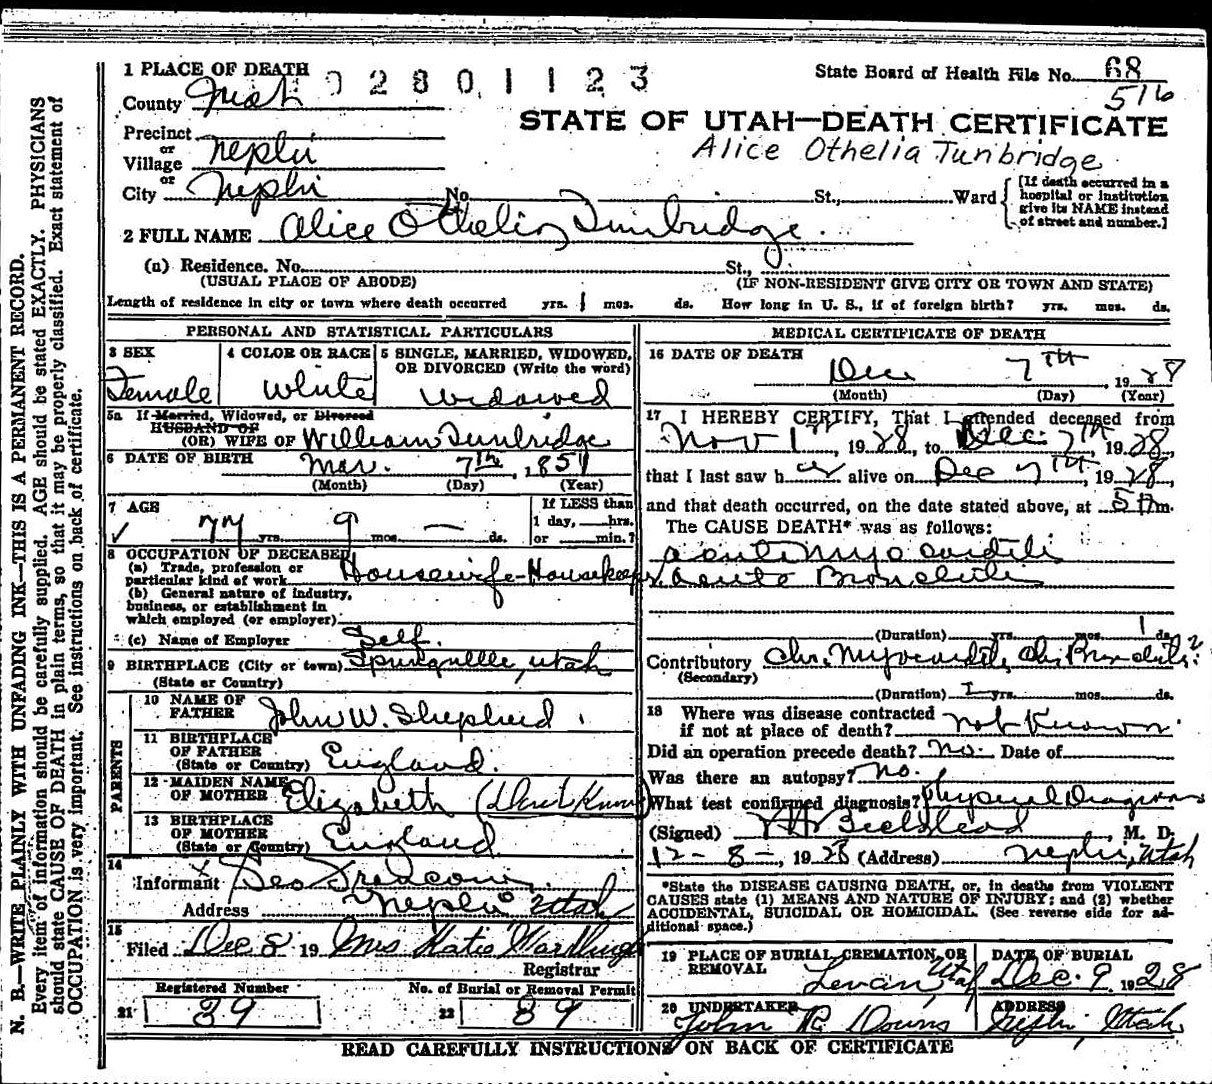 1 PLACE OF DEATH
0 2 8 0 1 1 2 3
State Board of Health File No. 68
516
County Juab
STATE OF UTAH—DEATH CERTIFICATE
Alice Othelia Tunbridge
Precinct
or
Village Nephi
or
City Nephi No. St., Ward
[If death occurred in a
hospital or institution
give its NAME instead
of street and number.]
2 FULL NAME Alice Othelia Tunbridge.
(a) Residence. No. St.,
(USUAL PLACE OF ABODE) (IF NON-RESIDENT GIVE CITY OR TOWN AND STATE)
Length of residence in city or town where death occurred yrs. 1 mos. ds. How long in U. S., if of foreign birth? yrs. mos. ds.
PERSONAL AND STATISTICAL PARTICULARS
3 SEX
Female
4 COLOR OR RACE
White
5 SINGLE, MARRIED, WIDOWED,
OR DIVORCED (Write the word)
Widowed
5a If Married, Widowed, or Divorced
HUSBAND OF
(OR) WIFE OF William Tunbridge
6 DATE OF BIRTH Mar. 7th, 1851
(Month) (Day) (Year)
7 AGE
77 yrs. 9 mos. — ds.
If LESS than
1 day, hrs.
or min.?
8 OCCUPATION OF DECEASED
(a) Trade, profession or
particular kind of work Housewife-Housekeeper
(b) General nature of industry,
business, or establishment in
which employed (or employer)
(c) Name of Employer Self.
9 BIRTHPLACE (City or town) Springville, Utah
(State or Country)
PARENTS
10 NAME OF
FATHER John W. Shepherd.
11 BIRTHPLACE
OF FATHER
(State or Country) England.
12 MAIDEN NAME
OF MOTHER Elizabeth (Dont Know)
13 BIRTHPLACE
OF MOTHER
(State or Country) England
14
Informant Geo
Address Nephi Utah
15
Filed Dec 8 19 Mrs Katie
Registrar
Registered Number
21 39
No. of Burial or Removal Permit
22 89
MEDICAL CERTIFICATE OF DEATH
16 DATE OF DEATH
Dec 7TH, 1928
(Month) (Day) (Year)
17 I HEREBY CERTIFY, That I attended deceased from
Nov 1st, 1928, to Dec. 7th, 1928,
that I last saw her alive on Dec 7TH, 1928,
and that death occurred, on the date stated above, at 5 m.
The CAUSE DEATH* was as follows:
acute Myocarditis
acute Bronchitis
(Duration) yrs. mos. 1 ds.
Contributory Chr. Myocarditis, Chr Bronchitis?
(Secondary)
(Duration) yrs. mos. ds.
18 Where was disease contracted
if not at place of death? not Known.
Did an operation precede death? no. Date of
Was there an autopsy? no.
What test confirmed diagnosis? Physical Diagnosis
(Signed) , M. D.
12-8-, 1928 (Address) Nephi, Utah
*State the DISEASE CAUSING DEATH, or, in deaths from VIOLENT
CAUSES state (1) MEANS AND NATURE OF INJURY; and (2) whether
ACCIDENTAL, SUICIDAL OR HOMICIDAL. (See reverse side for ad-
ditional space.)
19 PLACE OF BURIAL, CREMATION, OR
REMOVAL Levan, Utah
DATE OF BURIAL
Dec. 9, 1928
20 UNDERTAKER
John R. Downs
ADDRESS
Nephi, Utah
READ CAREFULLY INSTRUCTIONS ON BACK OF CERTIFICATE
N. B.—WRITE PLAINLY WITH UNFADING INK—THIS IS A PERMANENT RECORD.
Every item of information should be carefully supplied. AGE should be stated EXACTLY. PHYSICIANS
should state CAUSE OF DEATH in plain terms, so that it may be properly classified. Exact statement of
OCCUPATION is very important. See instructions on back of certificate.